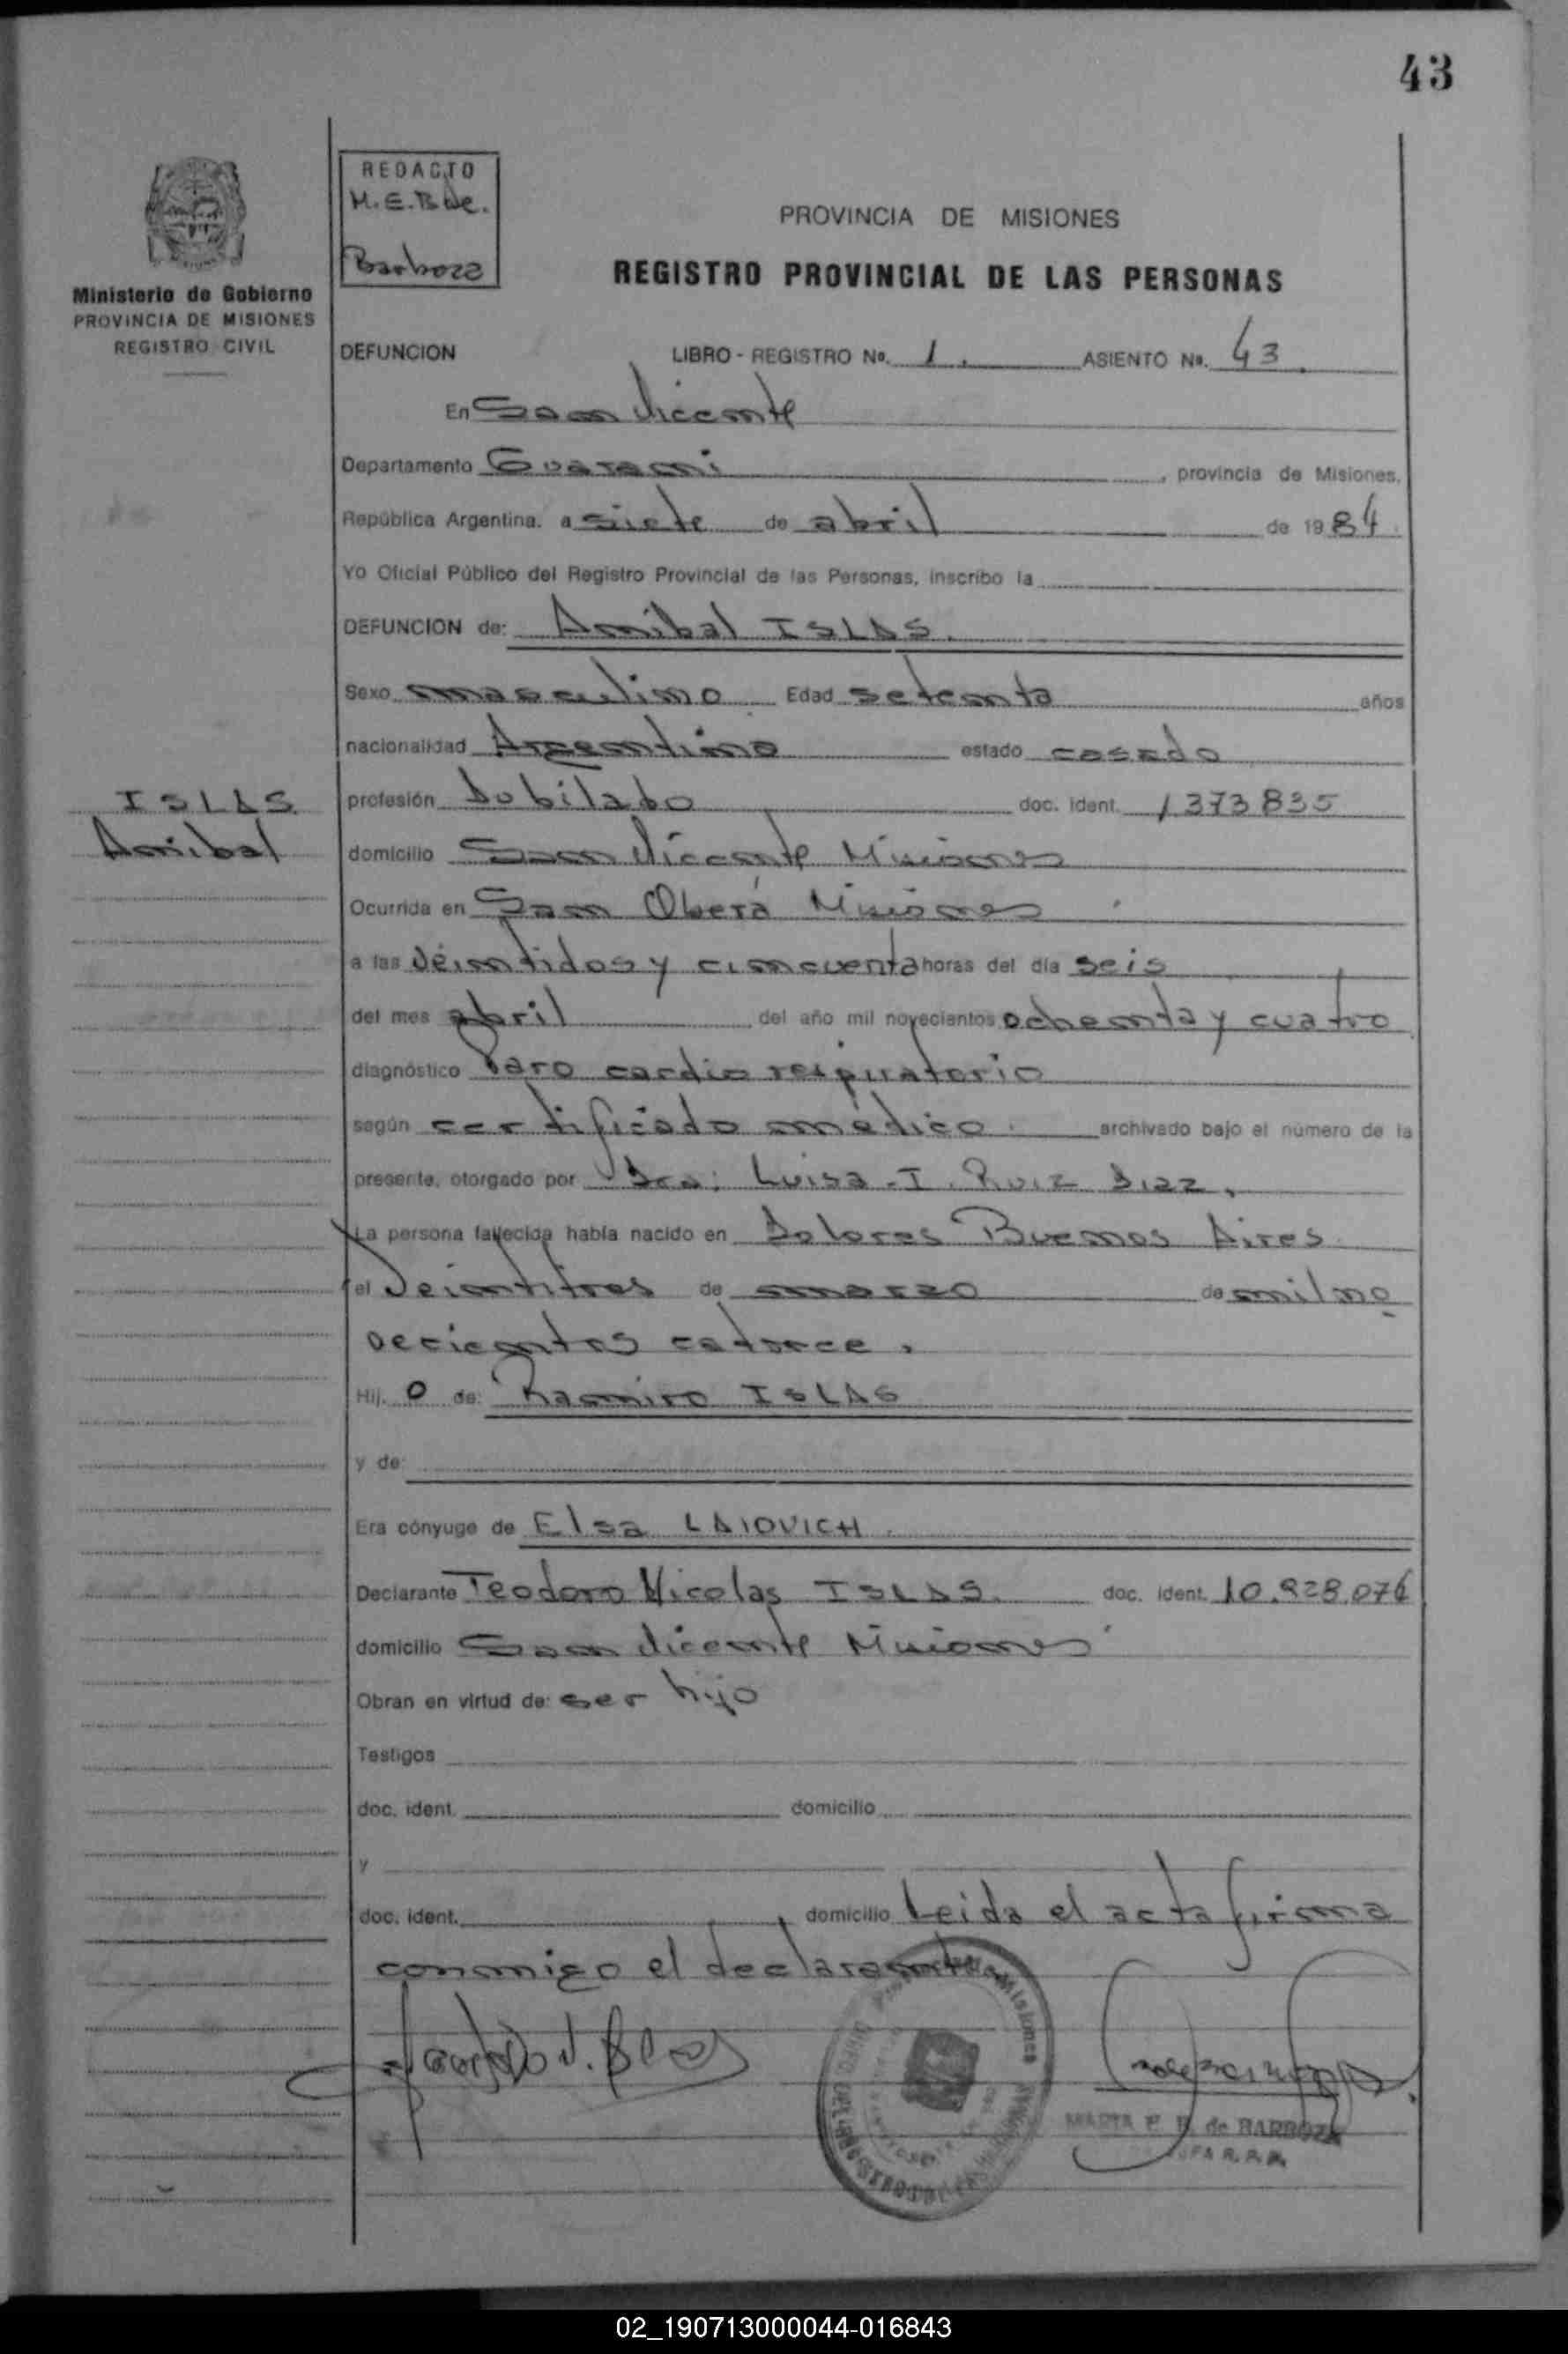 43
REDACTO
M.E.B de.
Barboza
Ministerio de Gobierno
PROVINCIA DE MISIONES
REGISTRO CIVIL
PROVINCIA DE MISIONES
REGISTRO PROVINCIAL DE LAS PERSONAS
DEFUNCION LIBRO - REGISTRO No. 1. ASIENTO No. 43.
En San Vicente
Departamento Guarani, provincia de Misiones,
República Argentina, a siete de abril de 1984.
Yo Oficial Público del Registro Provincial de las Personas, inscribo la
DEFUNCION de: Anibal ISLAS.
Sexo masculino Edad setenta años
nacionalidad Argentino estado casado
ISLAS
Anibal
profesión Jubilado doc. ident. 1373835
domicilio San Vicente Misiones
Ocurrida en San Oberá Misiones
a las veintidos y cincuenta horas del día seis
del mes abril del año mil novecientos ochenta y cuatro
diagnóstico Paro cardio respiratorio
según certificado médico. archivado bajo el número de la
presente, otorgado por Dra: Luisa I. Ruiz Diaz.
La persona fallecida había nacido en Dolores Buenos Aires
el veintitres de marzo de mil no
vecientos catorce.
Hij. o de: Ramiro ISLAS
y de:
Era cónyuge de Elsa LAIOVICH.
Declarante Teodoro Nicolas ISLAS. doc. ident. 10.928.076
domicilio San Vicente Misiones
Obran en virtud de: ser hijo
Testigos
doc. ident. domicilio
y
doc. ident. domicilio Leida el acta firma
conmigo el declarante
MARTA E. B. de BARBOZA
JEFA R.P.P.
02_190713000044-016843